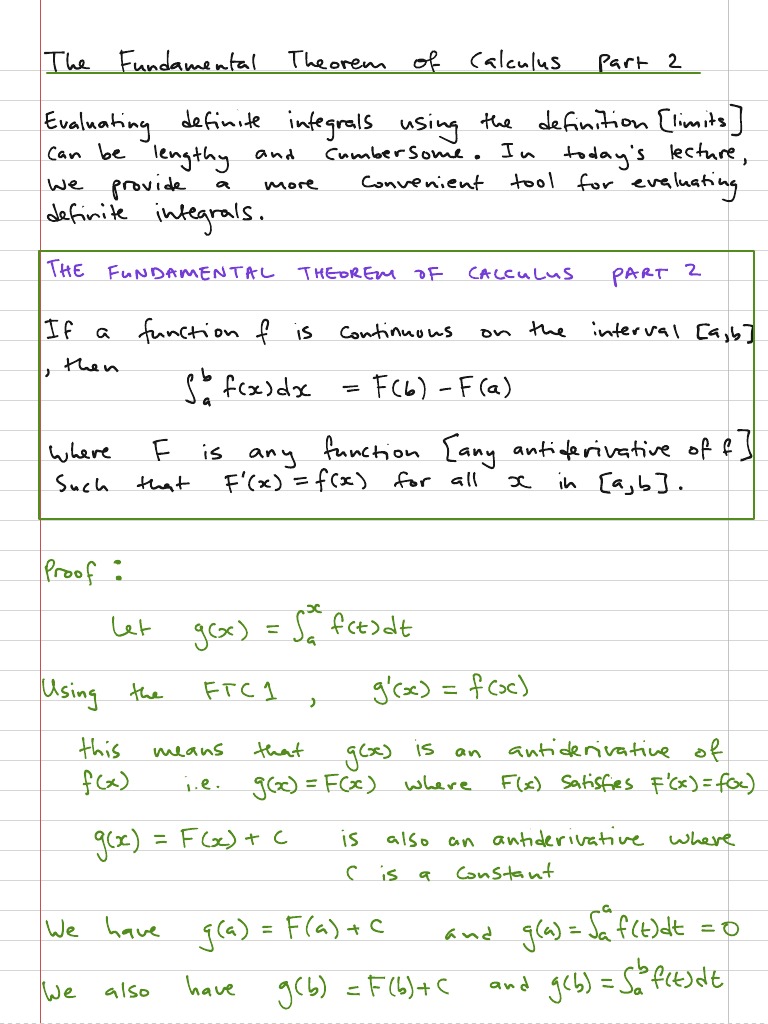 The Fundamental Theorem of Calculus Part 2
Evaluating definite integrals using the definition [limits]
can be lengthy and cumbersome. In today's lecture,
we provide a more convenient tool for evaluating
definite integrals.
THE FUNDAMENTAL THEOREM OF CALCULUS PART 2
If a function f is continuous on the interval [a,b]
, then
∫_a^b f(x)dx = F(b) - F(a)
where F is any function [any antiderivative of f]
Such that F'(x) = f(x) for all x in [a,b].
Proof :
Let g(x) = ∫_a^x f(t)dt
Using the FTC1 , g'(x) = f(x)
this means that g(x) is an antiderivative of
f(x) i.e. g(x) = F(x) where F(x) satisfies F'(x) = f(x)
g(x) = F(x) + C is also an antiderivative where
C is a constant
We have g(a) = F(a) + C and g(a) = ∫_a^a f(t)dt = 0
We also have g(b) = F(b) + C and g(b) = ∫_a^b f(t)dt